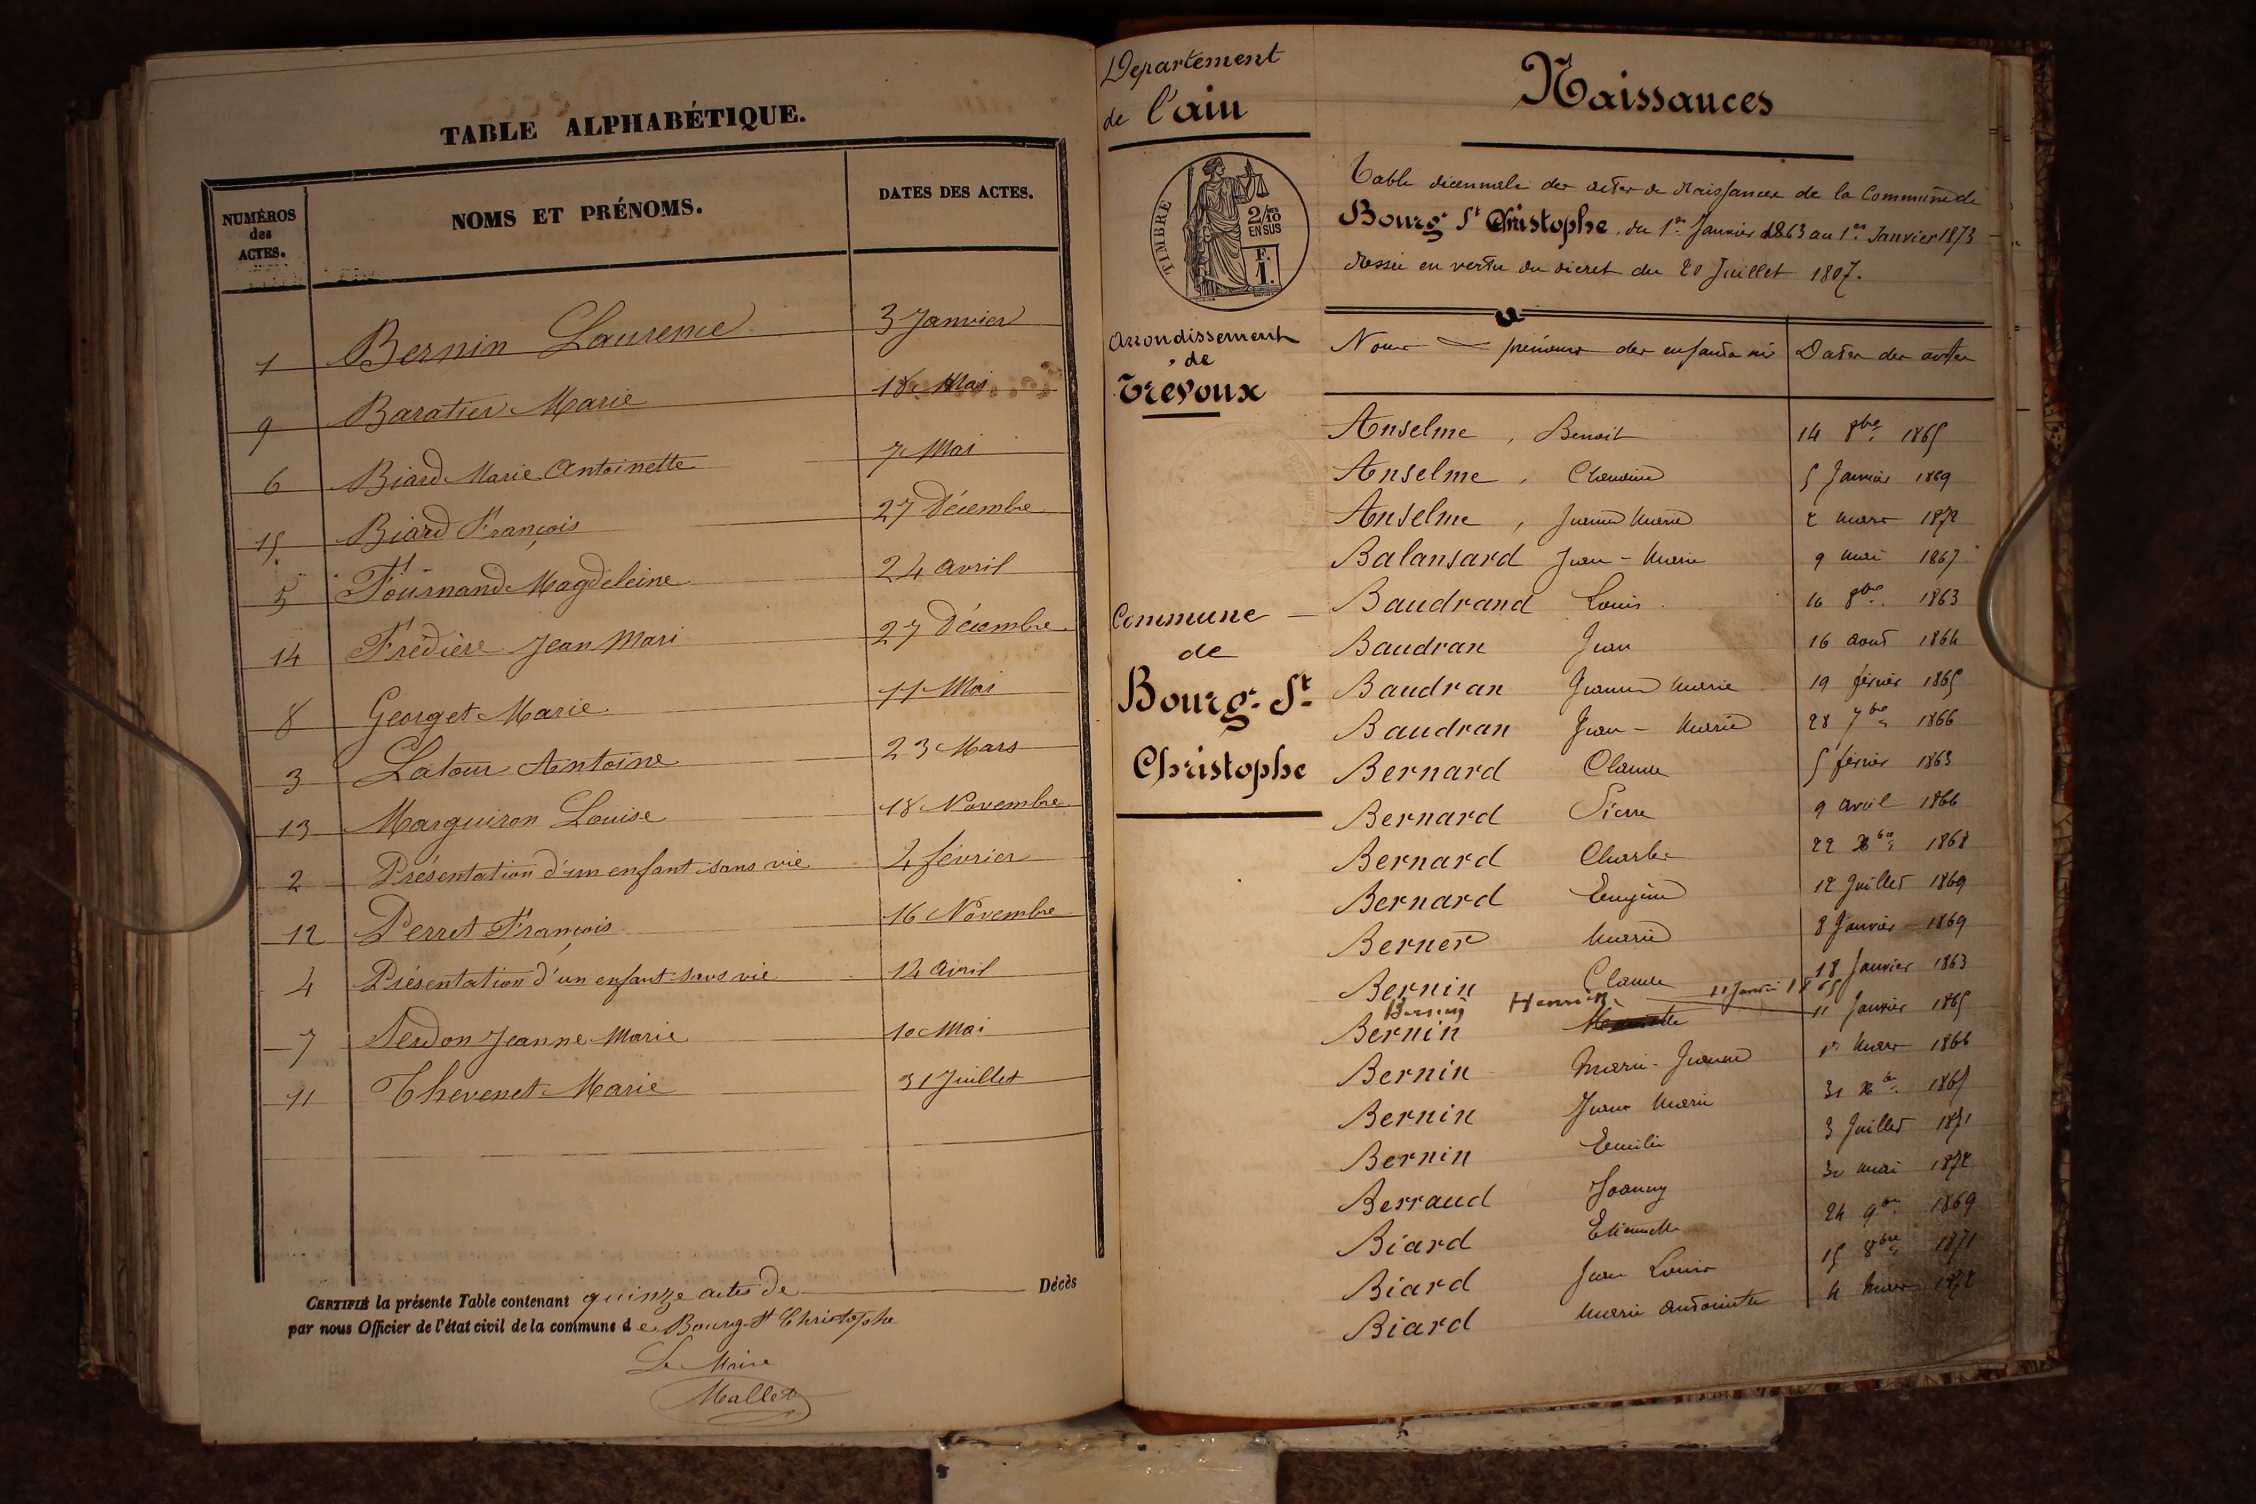 TABLE ALPHABÉTIQUE.
NUMÉROS des ACTES. NOMS ET PRÉNOMS. DATES DES ACTES.
1 Bernin Laurence 3 Janvier
9 Baratier Marie 18 Mai
6 Biard Marie Antoinette 7 Mai
15 Biard François 27 Décembre
5 Fournand Magdeleine 24 avril
14 Frédière Jean Mari 27 Décembre
8 Georget Marie 11 Mai
3 Latour Antoine 23 Mars
13 Marguiron Louise 18 Novembre
2 Présentation d'un enfant sans vie 2 février
12 Perret François 16 Novembre
4 Présentation d'un enfant sans vie 14 avril
7 Serdon Jeanne Marie 10 Mai
11 Thevenet Marie 31 Juillet
CERTIFIÉ la présente Table contenant quinze actes de Décès
par nous Officier de l'état civil de la commune de Bourg St Christophe
Le Maire
Mallet
Departement
de l'ain
TIMBRE
2/10 EN SUS
F. 1.
arrondissement
de
Trevoux
Commune
de
Bourg-St-
Christophe
Naissances
Table décennale des actes de Naissances de la Commune de
Bourg St Christophe, du 1er Janvier 1863 au 1er Janvier 1873
dressée en vertu du décret du 20 Juillet 1807.
Noms prénoms des enfants nés Dates des actes
Anselme, Benoit 14 8bre 1865
Anselme, Claudine 5 Janvier 1869
Anselme, Jeanne Marie 2 mars 1872
Balansard Jean-Marie 9 mai 1867
Baudrand Louis 16 8bre 1863
Baudran Jean 16 aout 1864
Baudran Jeanne Marie 19 février 1865
Baudran Jean-Marie 28 7bre 1866
Bernard Claude 5 février 1863
Bernard Pierre 9 avril 1866
Bernard Charles 22 Xbre 1868
Bernard Eugénie 12 Juillet 1869
Berner Marie 8 Janvier 1869
Bernin Claude 18 Janvier 1863
Bernin Henri 11 Janvier 1865
Bernin 11 Janvier 1865
Bernin Marie-Jeanne 1er Mars 1866
Bernin Jeanne Marie 31 Xbre 1865
Bernin Emilie 3 Juillet 1871
Berraud Joanny 30 mai 1872
Biard Etiennette 24 9bre 1869
Biard Jean Louis 15 8bre 1871
Biard Marie Antoinette 4 Mars 1872